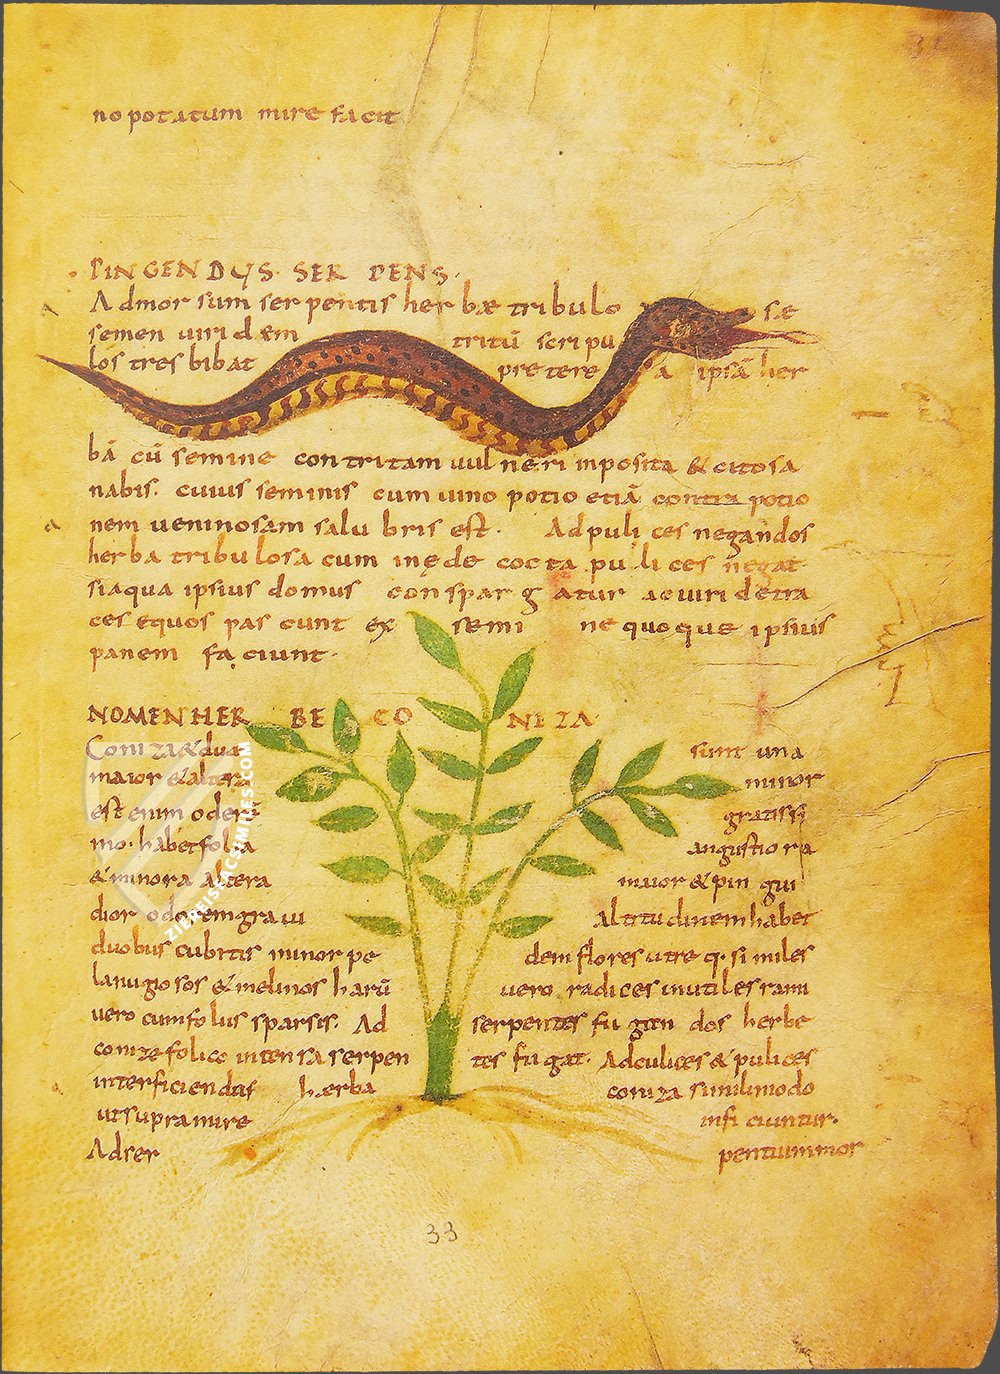 no potatum mire facit
PINGENDUS SERPENS.
Admorsum serpentis herbæ tribulosæ
semen uiridæm tritū scripu
los tres bibat pretere a ipsā her
bā cū semine contritam uulneri inposita & cito sa
nabis. cuius seminis cum uino potio etiā contra potio
nem ueninosam salubris est. Ad pulices negandos
herba tribulosa cum inęde cocta pulices negat
siaqua ipsius domus conspargatur ac uiride tra
ces equos pascunt ex semine quoque ipsius
panem faciunt.
NOMEN HERBE CONEZA
Coniza & duæ sunt una
maior & altera minor
est enim oderū gratissi
mo. habet folia angustiora
& minora altera maior & pin gui
dior odorem graui Altitudinem habet
duobus cubitis minor pe dem flores utreq. similes
lanugosos & melinos harū uero radices inutiles rami
uero cum folus sparsis. Ad serpentes fugandos herbe
conize folico intensa serpen tes fugat. Ad culices & pulices
interficiendas hærba coniza similimodo
ut supra mire inficiuntur.
Adser pentium mor
33
ZIEREIS FACSIMILES.COM